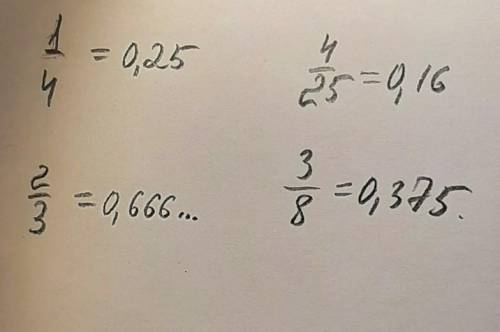 1/4 = 0,25
4/25 = 0,16
2/3 = 0,666...
3/8 = 0,375.